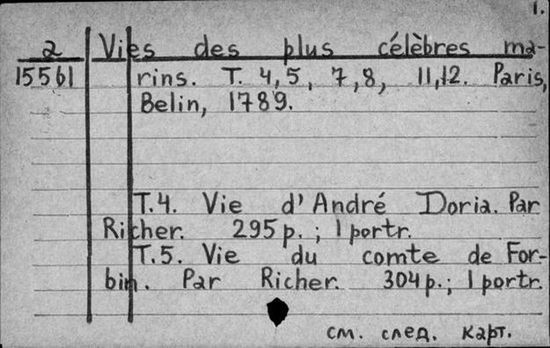 1.
2 Vies des plus célèbres ma-
15561 rins. T. 4,5, 7,8, 11,12. Paris,
Belin, 1789.
T.4. Vie d'André Doria. Par
Richer. 295 p.; 1 portr.
T.5. Vie du comte de For-
bin. Par Richer. 304 p.; 1 portr.
см. след. карт.